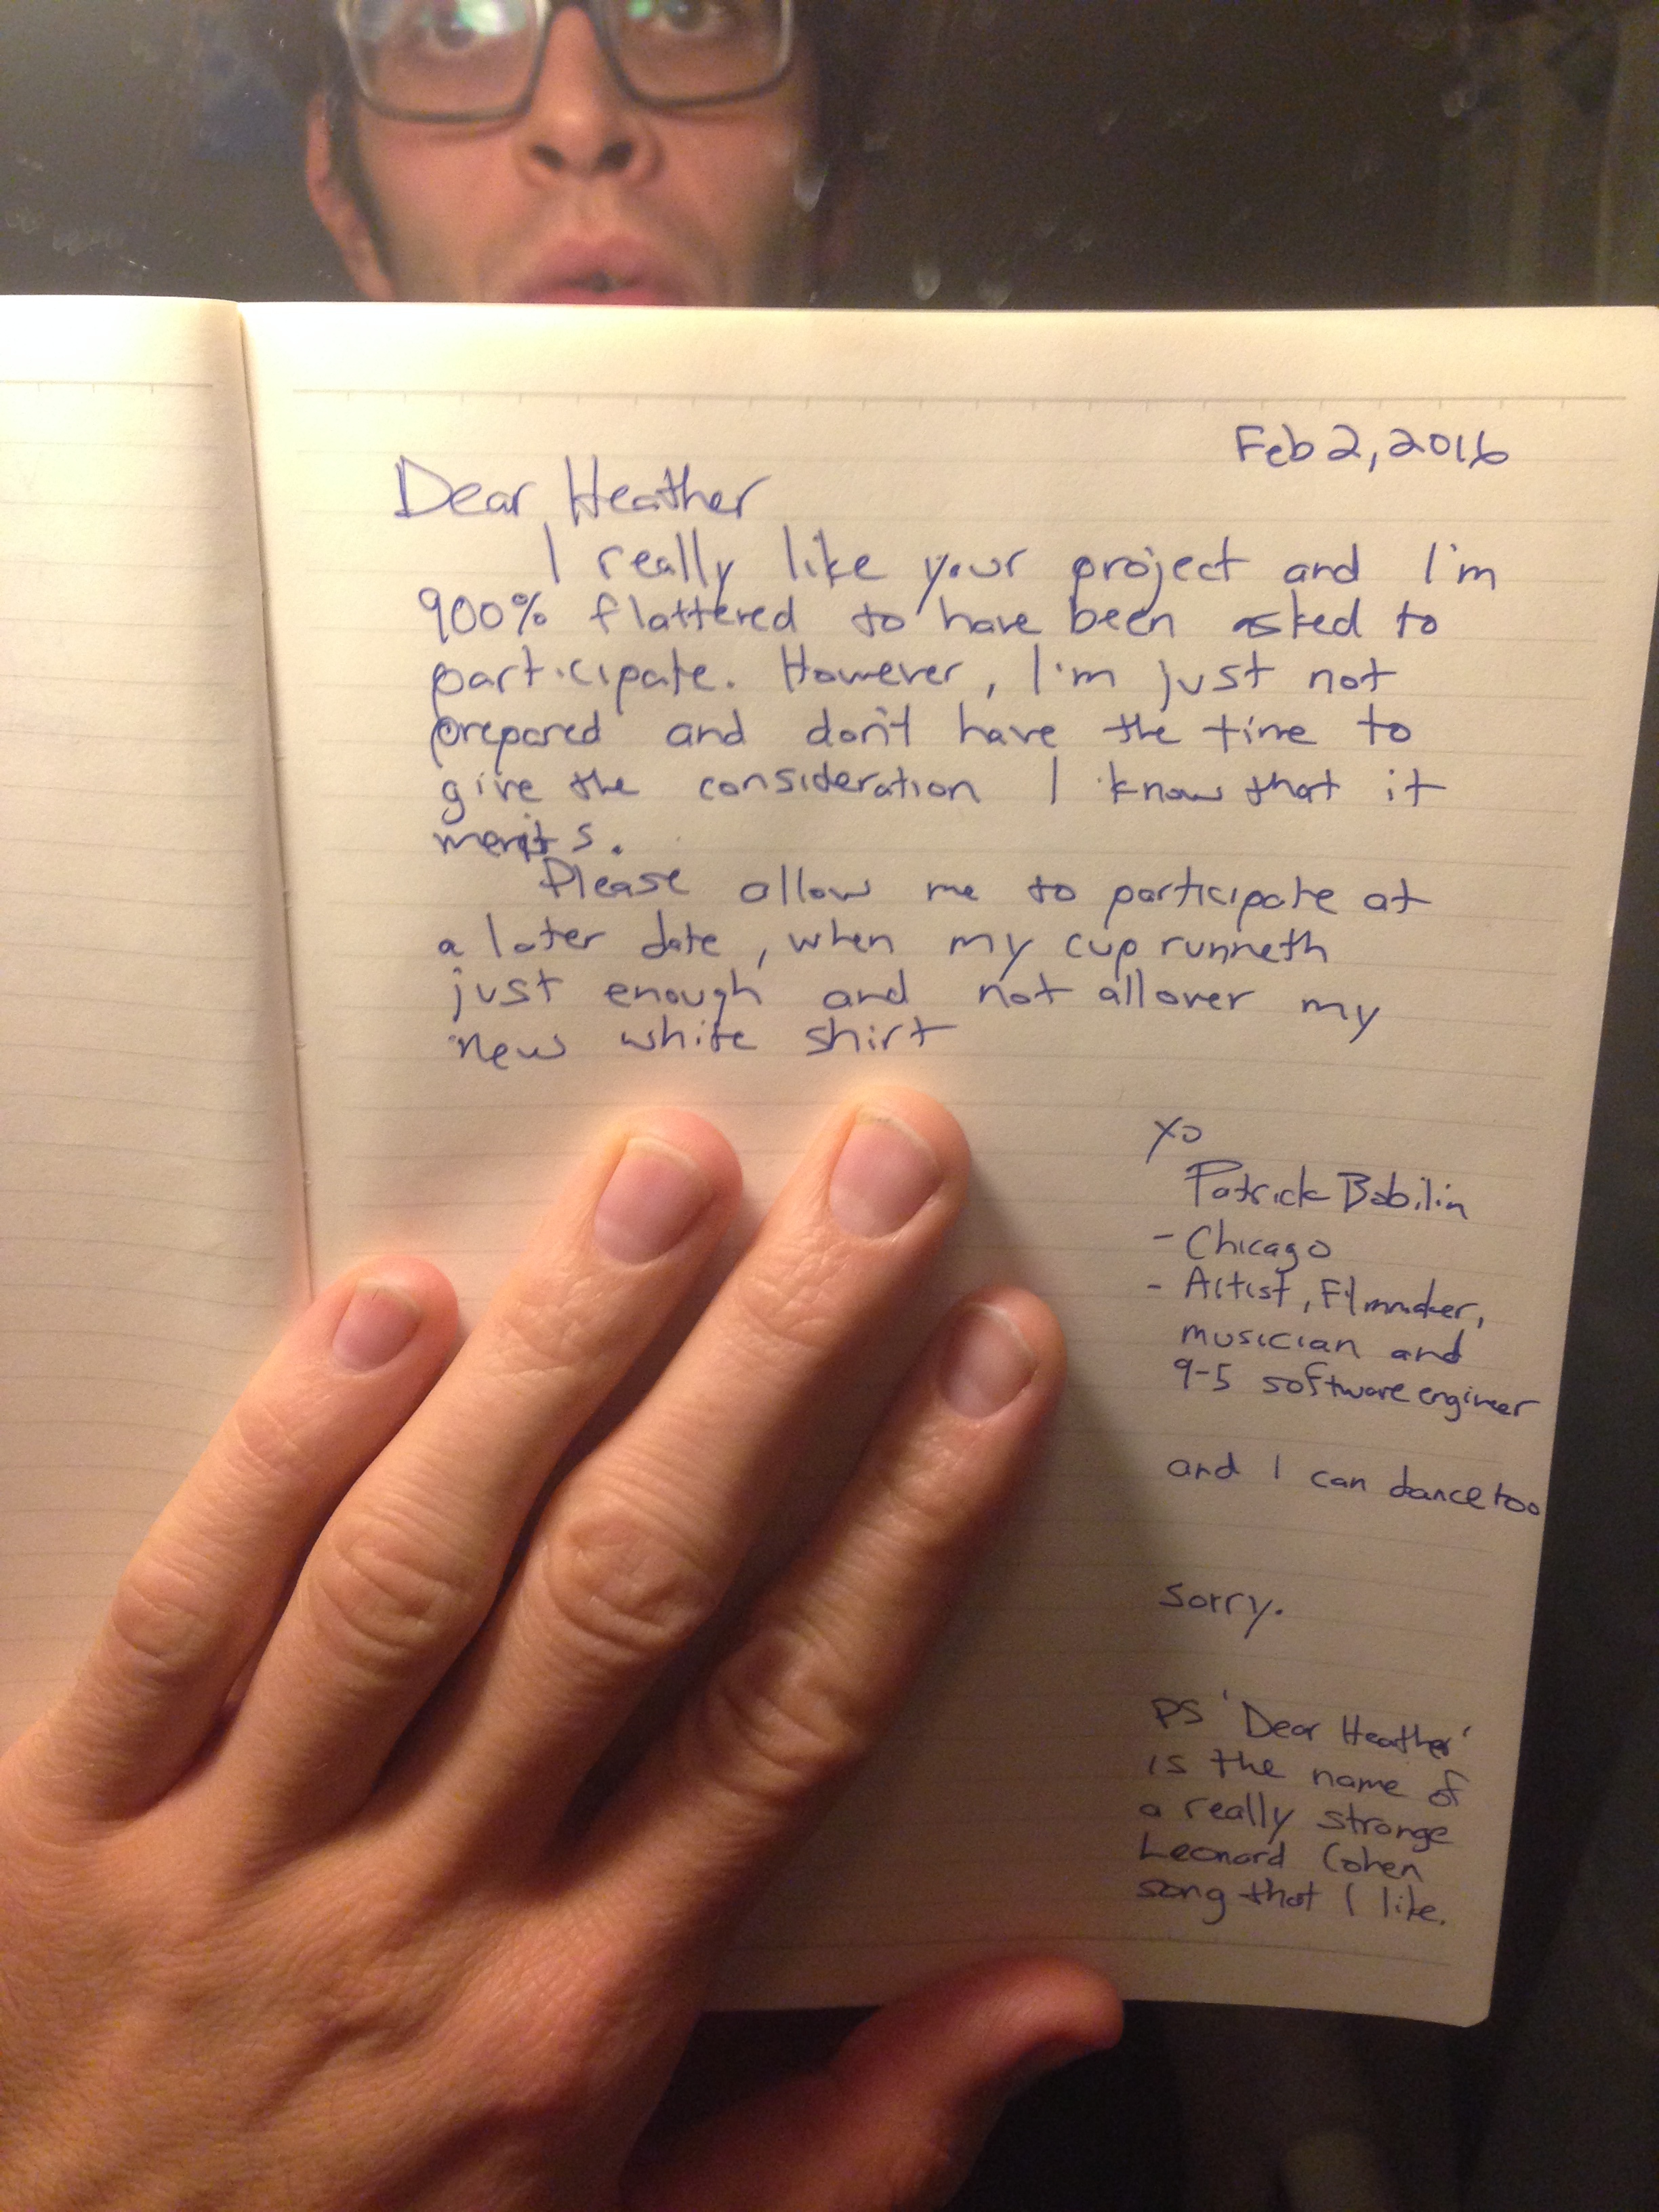 Feb 2, 2016
Dear Heather
I really like your project and I'm
900% flattered to have been asked to
participate. However, I'm just not
prepared and don't have the time to
give the consideration I know that it
merits.
Please allow me to participate at
a later date, when my cup runneth
just enough and not all over my
new white shirt
xo
Patrick Babilin
- Chicago
- Artist, Filmmaker,
musician and
9-5 software engineer
and I can dance too
sorry.
PS 'Dear Heather'
is the name of
a really strange
Leonard Cohen
song that I like.